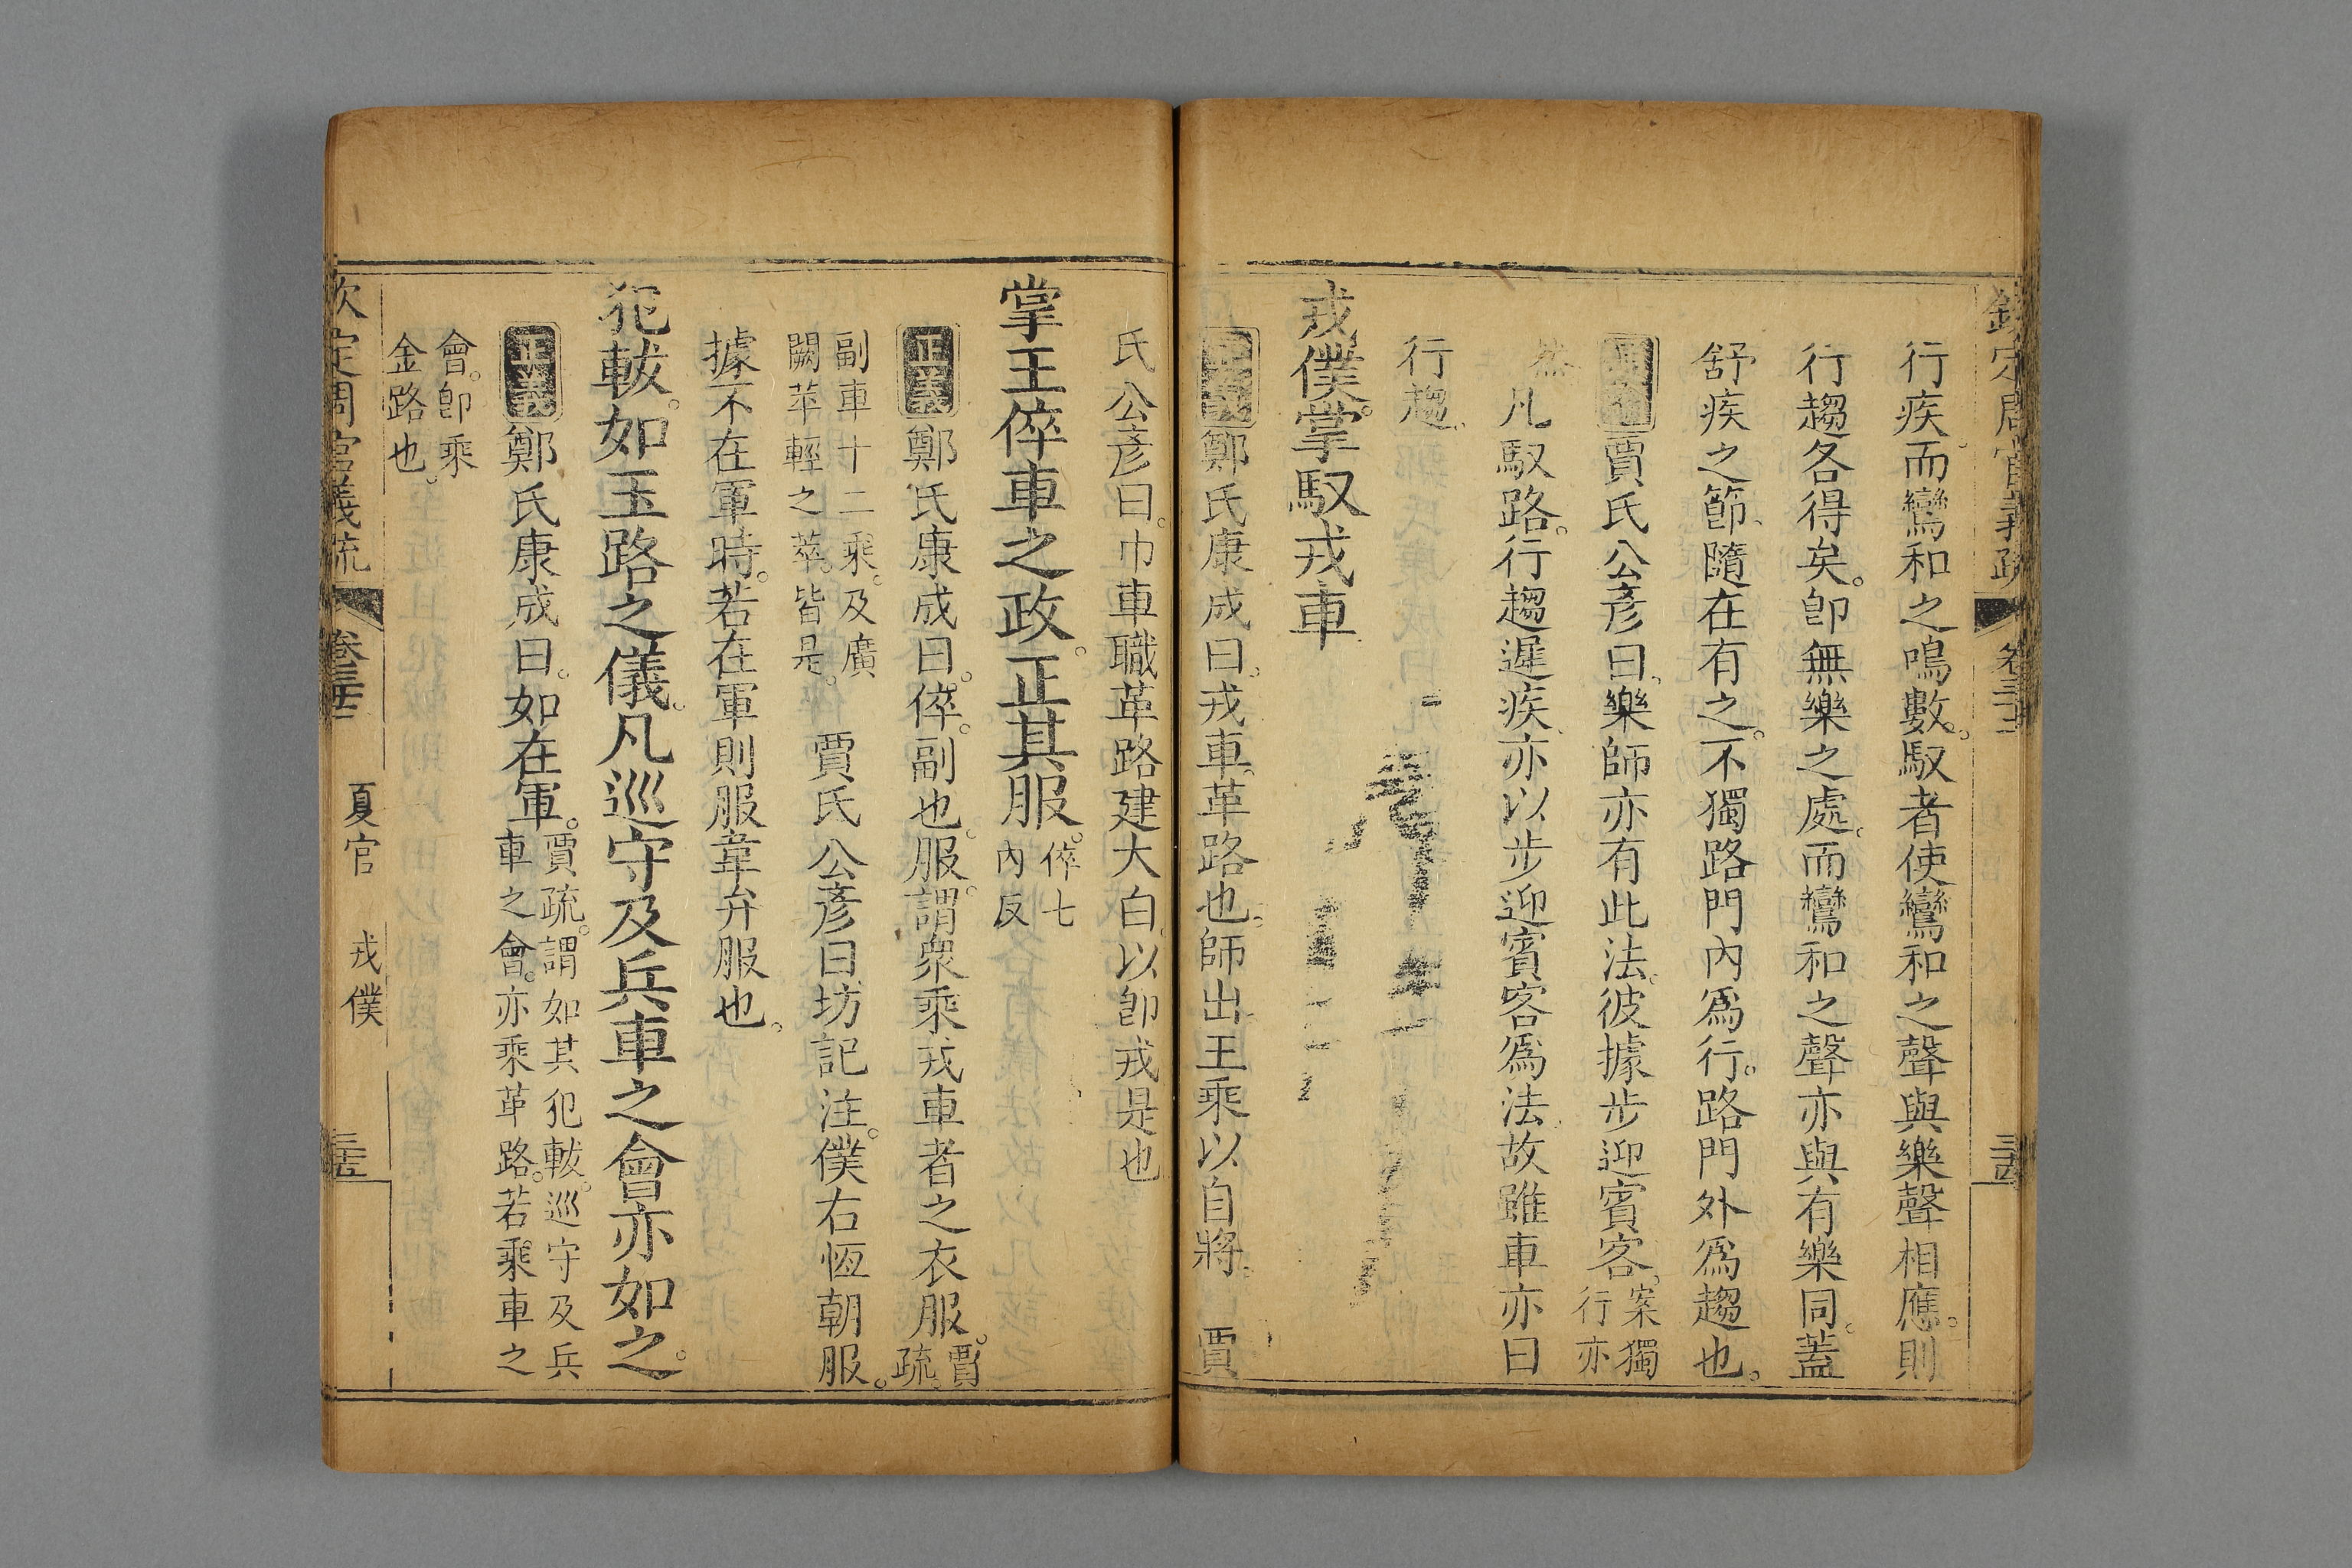 欽定周官義疏 卷三十二 三十四
行疾而鸞和之鳴數馭者使鸞和之聲與樂聲相應則
行趨各得矣卽無樂之處而鸞和之聲亦與有樂同蓋
舒疾之節隨在有之不獨路門內爲行路門外爲趨也
賈氏公彥曰樂師亦有此法彼據步迎賓客案獨行亦
然凡馭路行趨遲疾亦以步迎賓客爲法故雖車亦曰
行趨
戎僕掌馭戎車
正義鄭氏康成曰戎車革路也師出王乘以自將 賈
氏公彥曰巾車職革路建大白以卽戎是也
掌王倅車之政正其服倅七內反
正義鄭氏康成曰倅副也服謂衆乘戎車者之衣服賈疏
副車十二乘及廣闕苹輕之萃皆是 賈氏公彥曰坊記注僕右恆朝服
據不在軍時若在軍則服韋弁服也
犯軷如玉路之儀凡巡守及兵車之會亦如之
正義鄭氏康成曰如在軍賈疏謂如其犯軷巡守及兵車之會亦乘革路若乘車之
會卽乘金路也
欽定周官義疏 卷三十二 夏官 戎僕 三十五